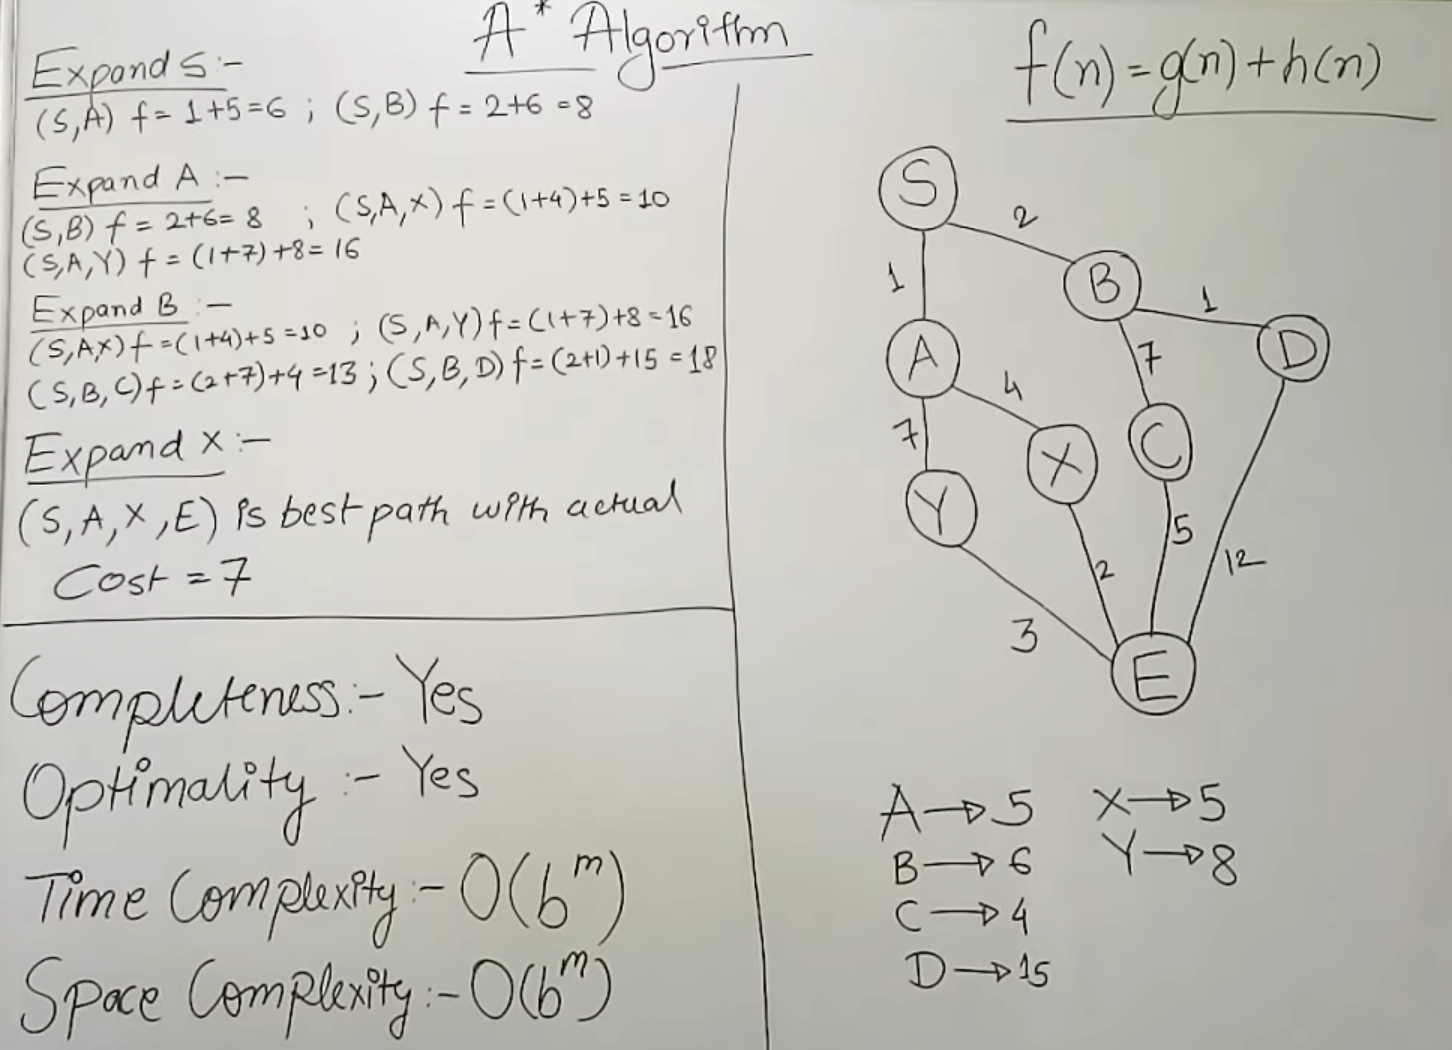 A* Algorithm
Expand S :-
(S,A) f = 1+5=6 ; (S,B) f = 2+6 =8
Expand A :-
(S,B) f = 2+6= 8 ; (S,A,X) f = (1+4)+5 = 10
(S,A,Y) f = (1+7)+8= 16
Expand B :-
(S,A,X) f =(1+4)+5 =10 ; (S,A,Y) f= (1+7)+8 =16
(S,B,C) f = (2+7)+4 =13 ; (S,B,D) f= (2+1)+15 =18
Expand X :-
(S,A,X,E) is best path with actual
Cost = 7
Completeness:- Yes
Optimality :- Yes
Time Complexity :- O(b^m)
Space Complexity :- O(b^m)
f(n) = g(n) + h(n)
S
2
B
1
1
D
A
7
4
C
7
X
Y
5
12
2
3
E
A→5 X→5
B→6 Y→8
C→4
D→15